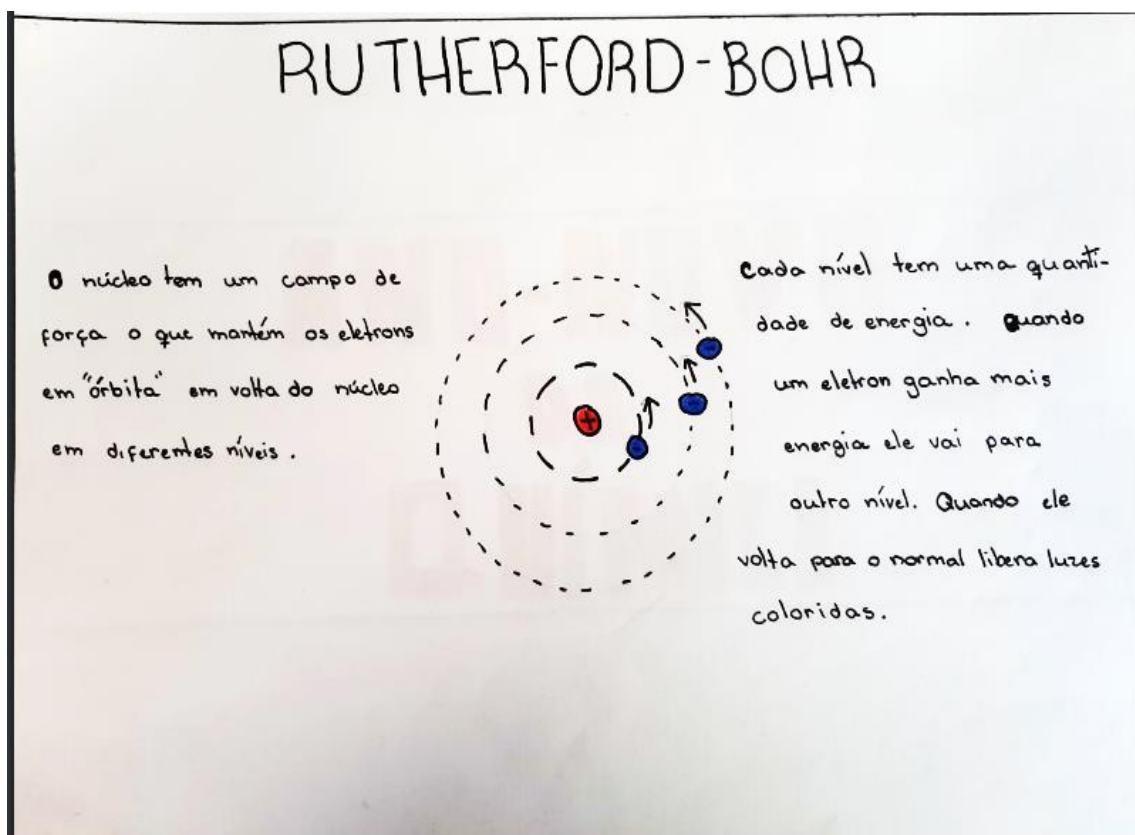 RUTHERFORD-BOHR
O núcleo tem um campo de
força o que mantém os eletrons
em "órbita" em volta do núcleo
em diferentes níveis.
+
-
-
-
Cada nível tem uma quanti-
dade de energia. Quando
um eletron ganha mais
energia ele vai para
outro nível. Quando ele
volta para o normal libera luzes
coloridas.